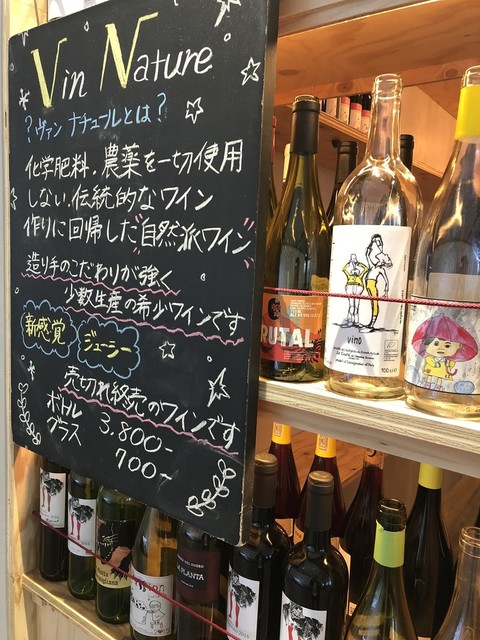 Vin Nature
?ヴァン ナチュールとは?
化学肥料、農薬を一切使用
しない、伝統的なワイン
作りに回帰した"自然派ワイン"
造り手のこだわりが強く
少数生産の希少ワインです
新感覚 ジューシー
売切れ終売のワインです
ボトル 3,800-
グラス 700-
RUTAL
vino
LA PLANTA